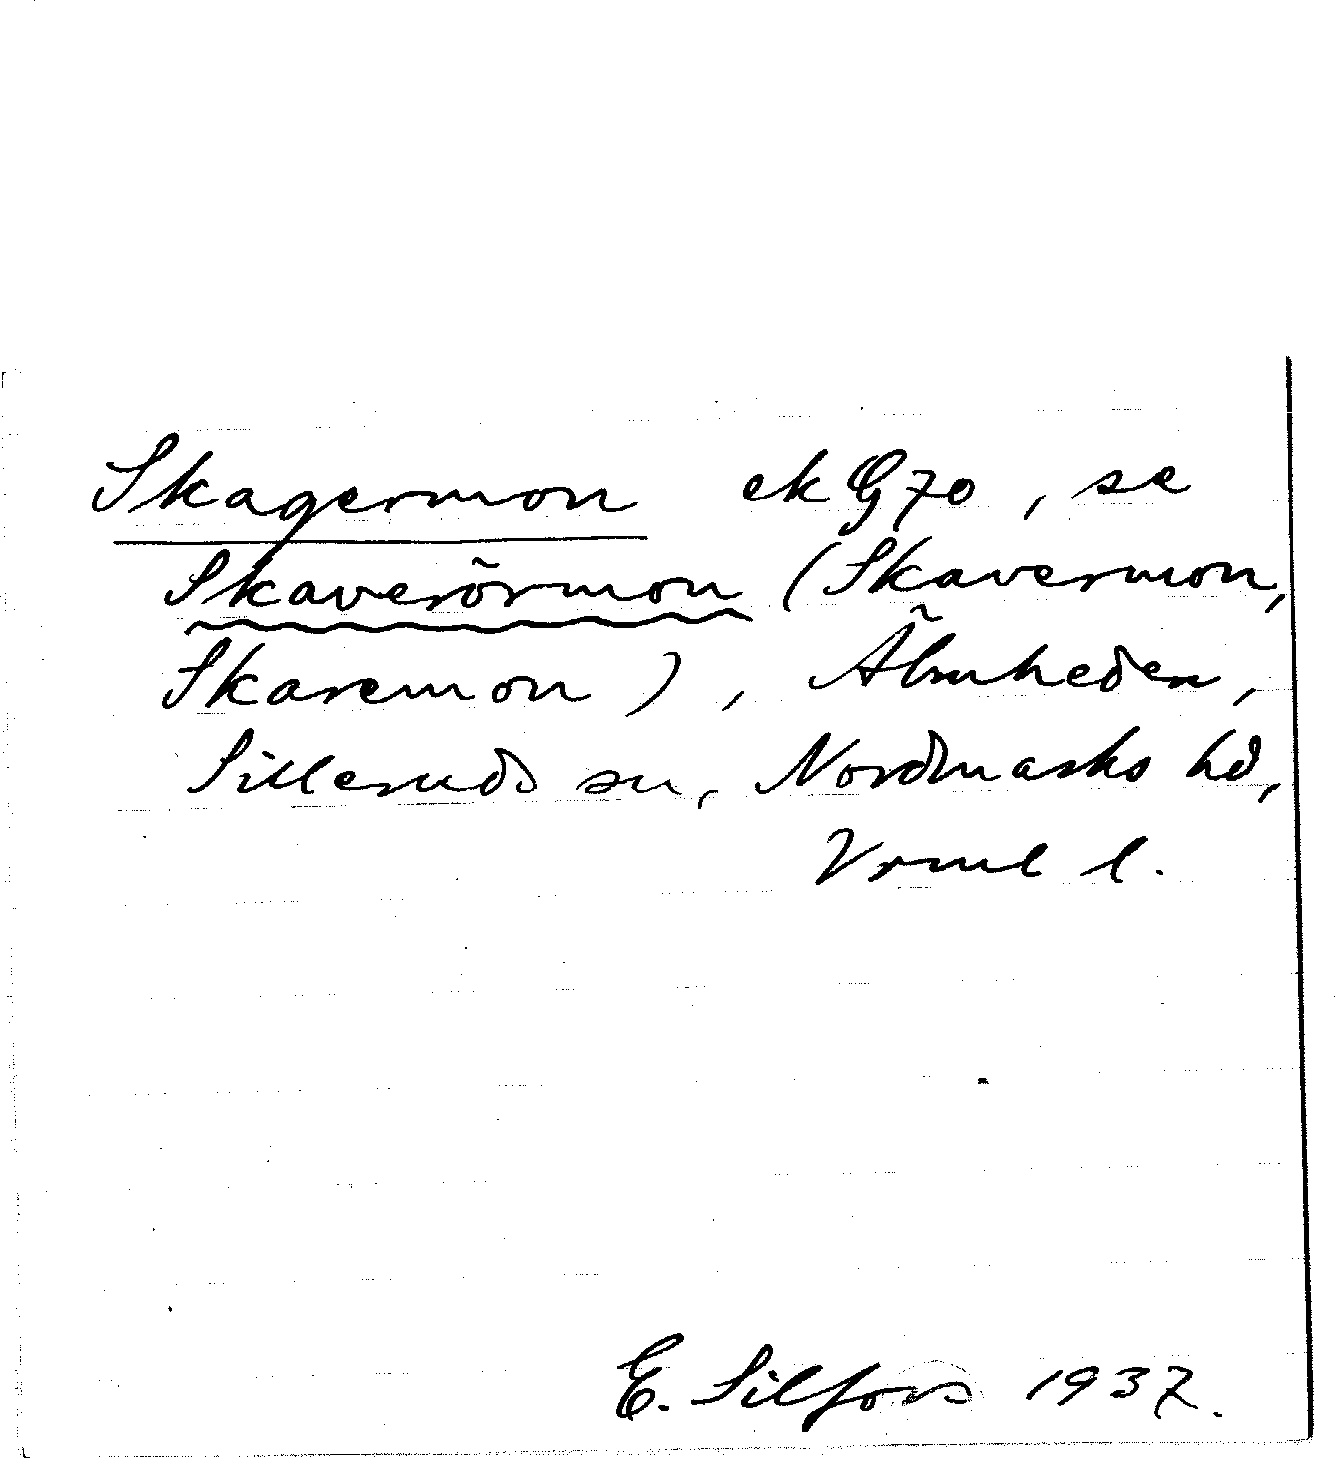 Skagermon ek G70, se
Skaverörmon (Skavermon,
Skaremon), Älmheden,
Silleruds sn, Nordmarks hd,
Vrml l.
E. Silfors 1937.